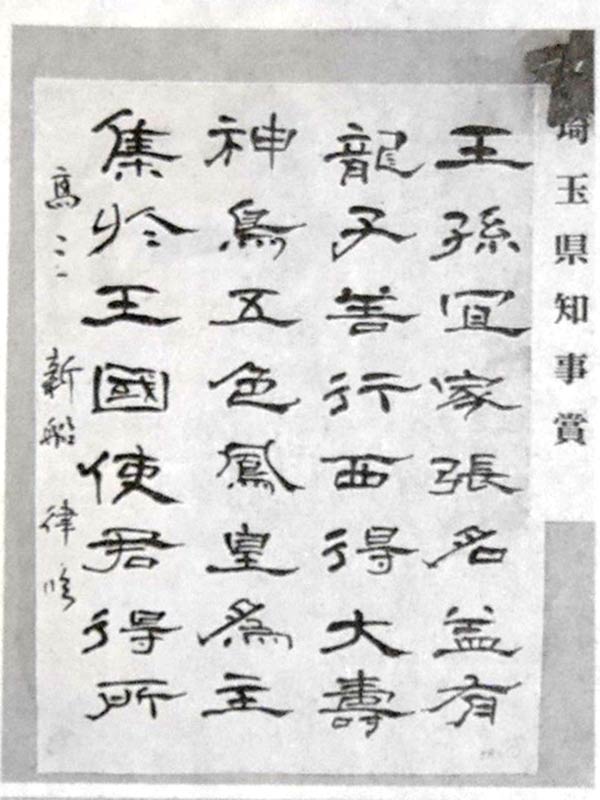 埼玉県知事賞
王孫宜家張名益有
龍子善行西得大壽
神鳥五色鳳皇爲主
集於王國使君得所
高二 新船 律